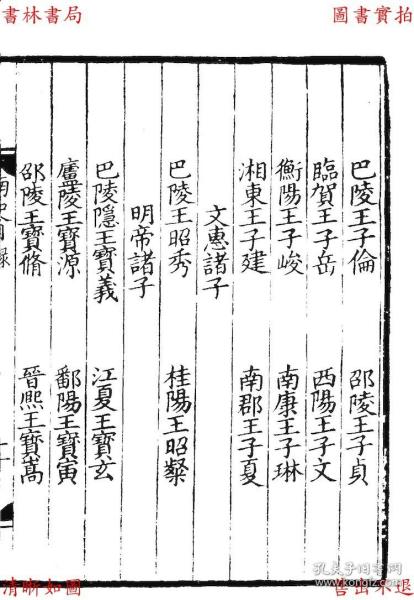 書林書局
圖書實拍
巴陵王子倫 邵陵王子貞
臨賀王子岳 西陽王子文
衡陽王子峻 南康王子琳
湘東王子建 南郡王子夏
文惠諸子
巴陵王昭秀 桂陽王昭粲
明帝諸子
巴陵隱王寶義 江夏王寶玄
廬陵王寶源 鄱陽王寶寅
邵陵王寶脩 晉熙王寶嵩
孔夫子旧书网
清晰如圖
售出不退